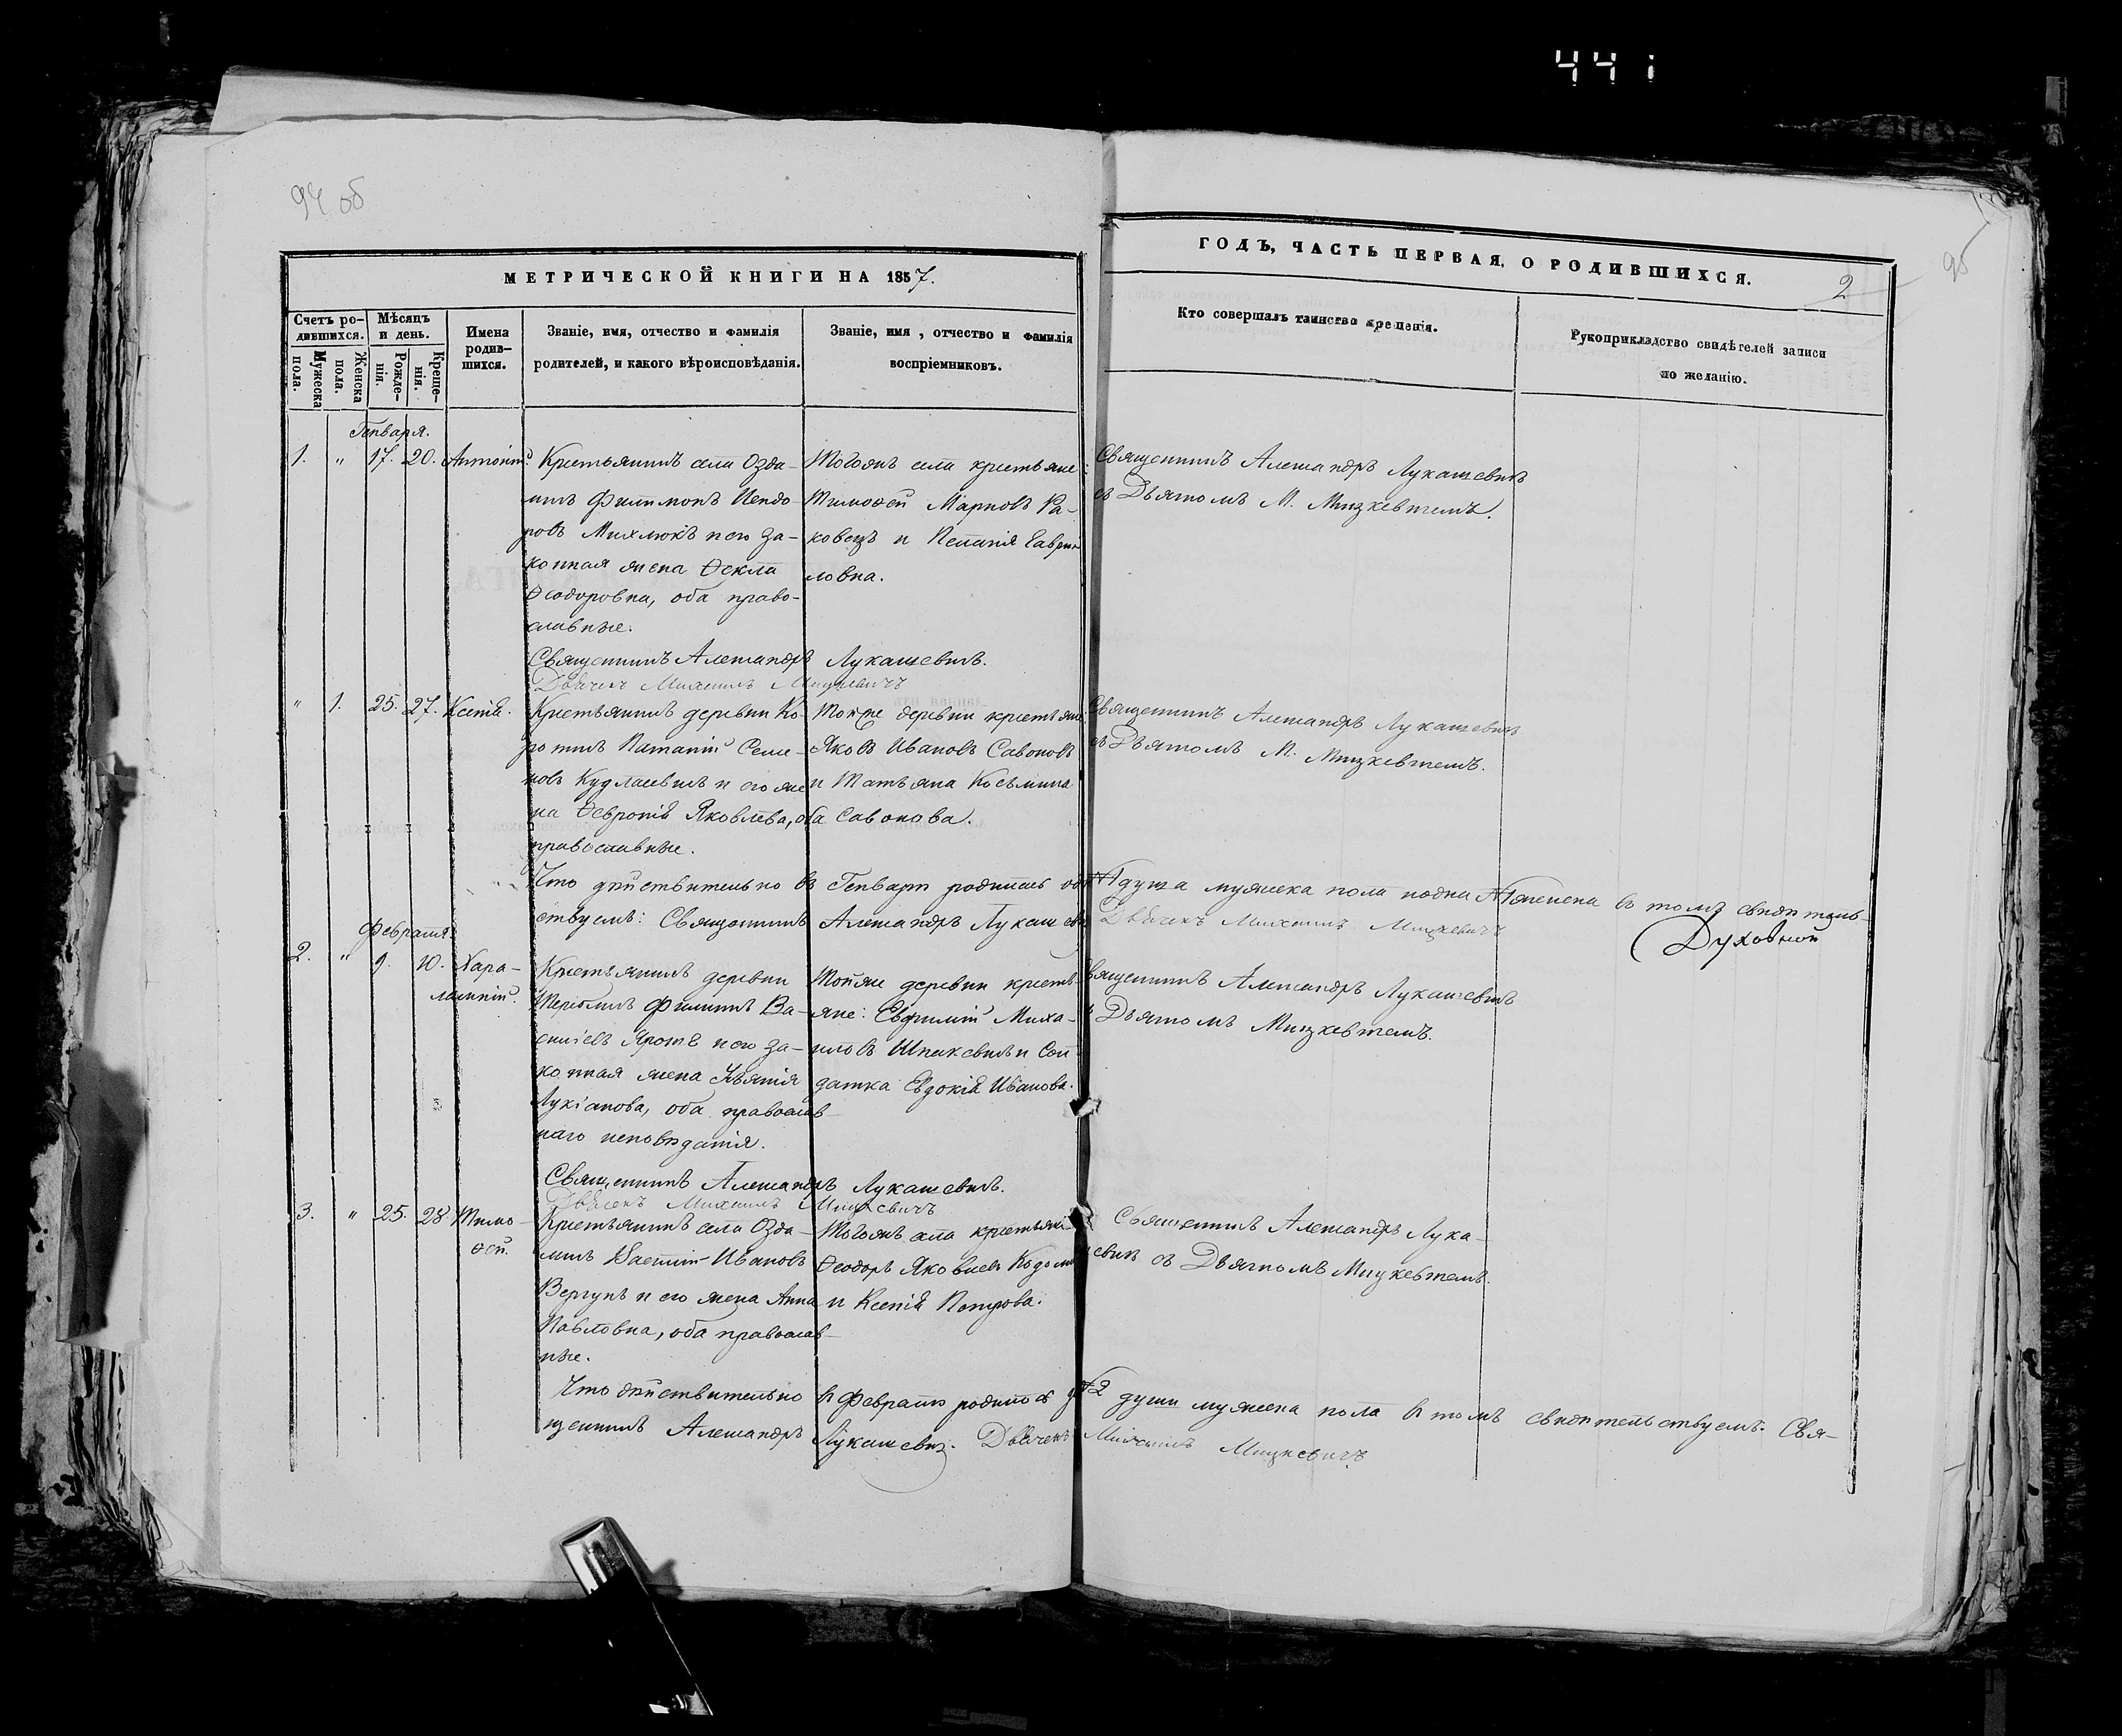 441
94 об
95
МЕТРИЧЕСКОЙ КНИГИ НА 1857.
ГОДЪ, ЧАСТЬ ПЕРВАЯ, О РОДИВШИХСЯ.
2
Счетъ родившихся.
Мужеска пола.
Женска пола.
Мѣсяцъ и день.
Рожденія.
Крещенія.
Имена родившихся.
Званіе, имя, отчество и фамилія
родителей, и какого вѣроисповѣданія.
Званіе, имя, отчество и фамилія
воспріемниковъ.
Кто совершалъ таинство крещенія.
Рукоприкладство свидѣтелей записи
по желанію.
Генваря.
1. " 17. 20. Антоній.
Крестьянинъ села Озда-
тичъ Филимонъ
ровъ Михлюкъ и его за-
конная жена Ѳекла
Ѳеодоровна, оба право-
славные.
Тогожъ села крестьяне:
Тимоѳей Марковъ Ра-
ковецъ и Гаври-
ловна.
Священникъ Александръ Лукашевичъ
съ Дьячкомъ М. Мицкевичемъ.
Священникъ Александръ Лукашевичъ.
Дьячекъ Михаилъ Мицкевичъ
" 1. 25. 27. Ксенія.
Крестьянинъ деревни Ко-
ротичъ Семе-
новъ Кудлаевичъ и его же-
на Ѳевронія Яковлева, оба
православные.
Тойже деревни крестьяне:
Яковъ Ивановъ Савоновъ
и Татьяна Косьмина
Савонова.
Священникъ Александръ Лукашевичъ
съ Дьячкомъ М. Мицкевичемъ.
Что дѣйствительно въ Генварѣ родилась №1 душа мужеска пола и одна №1 женска въ томъ свидѣтель-
ствуемъ: Священникъ Александръ Лукашевичъ Дьячекъ Михаилъ Мицкевичъ
Духовной
Февраля.
2. " 9. 10. Хара-
лампій.
Крестьянинъ деревни
Филиппъ Ва-
силіевъ и его за-
конная жена
Лукіанова, оба православ-
наго исповѣданія.
Тойже деревни кресть-
яне: Евфимій Миха-
иловъ Шпакевичъ и Сол-
датка Евдокія Иванова.
Священникъ Александръ Лукашевичъ
съ Дьячкомъ Мицкевичемъ.
Священникъ Александръ Лукашевичъ.
Дьячекъ Михаилъ Мицкевичъ
3. " 25. 28 Тимо-
ѳей.
Крестьянинъ села Озда-
тичъ Ивановъ
Вергунъ и его жена Анна
Павловна, оба православ-
ные.
Тогожъ села крестьяне
Ѳеодоръ Яковлевъ
и Ксенія Петрова.
Священникъ Александръ Лука-
шевичъ съ Дьячкомъ Мицкевичемъ.
Что дѣйствительно въ Февралѣ родилось №2 души мужеска пола въ томъ свидѣтельствуемъ: Свя-
щенникъ Александръ Лукашевичъ. Дьячекъ Михаилъ Мицкевичъ